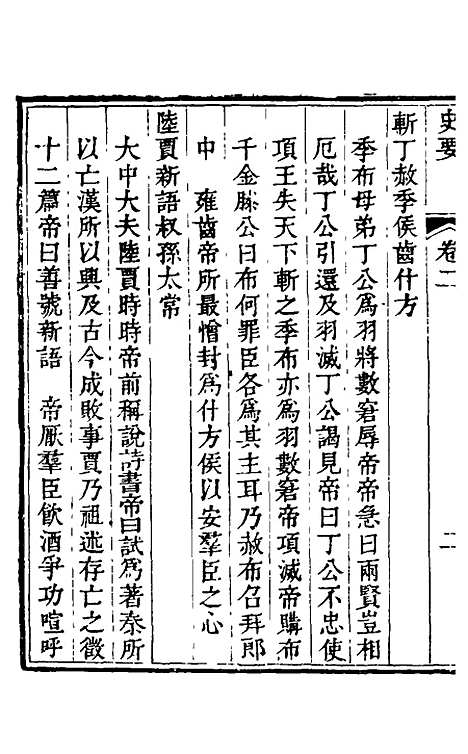 史要
卷二
二
斬丁赦季侯齒什方
季布母弟丁公爲羽將數窘辱帝帝急曰兩賢豈相
厄哉丁公引還及羽滅丁公謁見帝曰丁公不忠使
項王失天下斬之季布亦爲羽數窘帝項滅帝購布
千金滕公曰布何罪臣各爲其主耳乃赦布召拜郎
中　雍齒帝所最憎封爲什方侯以安羣臣之心
陸賈新語叔孫太常
大中大夫陸賈時時帝前稱說詩書帝曰試爲著秦所
以亡漢所以興及古今成敗事賈乃祖述存亡之徵
十二篇帝曰善號新語　帝厭羣臣飲酒爭功喧呼